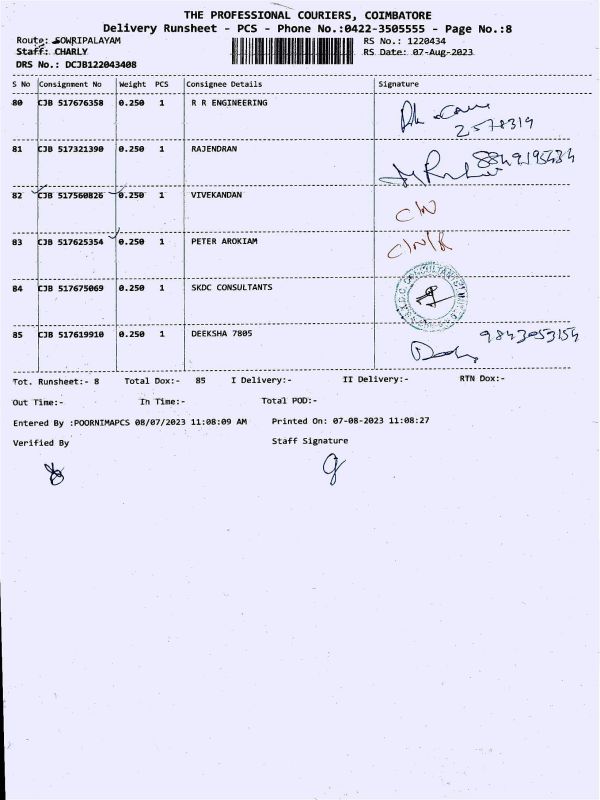 THE PROFESSIONAL COURIERS, COIMBATORE
Delivery Runsheet - PCS - Phone No.:0422-3505555 - Page No.:8
Route: SOWRIPALAYAM RS No.: 1220434
Staff: CHARLY RS Date: 07-Aug-2023
DRS No.: DCJB122043408
S No Consignment No Weight PCS Consignee Details Signature
80 CJB 517676358 0.250 1 R R ENGINEERING
2578319
81 CJB 517321390 0.250 1 RAJENDRAN
82 CJB 517560826 0.250 1 VIVEKANDAN
83 CJB 517625354 0.250 1 PETER AROKIAM
84 CJB 517675069 0.250 1 SKDC CONSULTANTS
85 CJB 517619910 0.250 1 DEEKSHA 7805 9843053154
Tot. Runsheet:- 8 Total Dox:- 85 I Delivery:- II Delivery:- RTN Dox:-
Out Time:- In Time:- Total POD:-
Entered By :POORNIMAPCS 08/07/2023 11:08:09 AM Printed On: 07-08-2023 11:08:27
Verified By Staff Signature